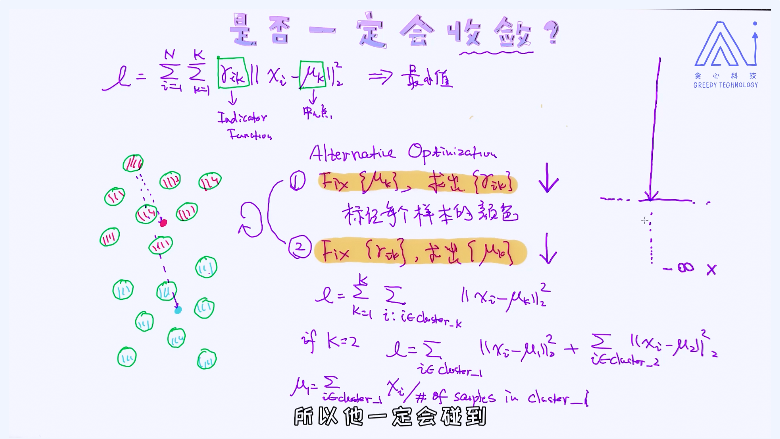 是否一定会收敛?
贪心科技
GREEDY TECHNOLOGY
ℓ = ∑_{i=1}^{N} ∑_{k=1}^{K} γ_{ik} ‖x_i − μ_k‖₂² ⟹ 最小值
Indicator
Function
中心点
Alternative Optimization
① Fix {μ_k}, 求出 {γ_{ik}} ↓
标任每个样本的颜色
② Fix {γ_{ik}}, 求出 {μ_k} ↓
−∞ X
ℓ = ∑_{k=1}^{K} ∑_{i: i∈cluster_k} ‖x_i − μ_k‖₂²
if K=2 ℓ = ∑_{i∈cluster_1} ‖x_i − μ_1‖₂² + ∑_{i∈cluster_2} ‖x_i − μ_2‖₂²
μ_1 = ∑_{i∈cluster_1} x_i / # of samples in cluster_1
所以他一定会碰到